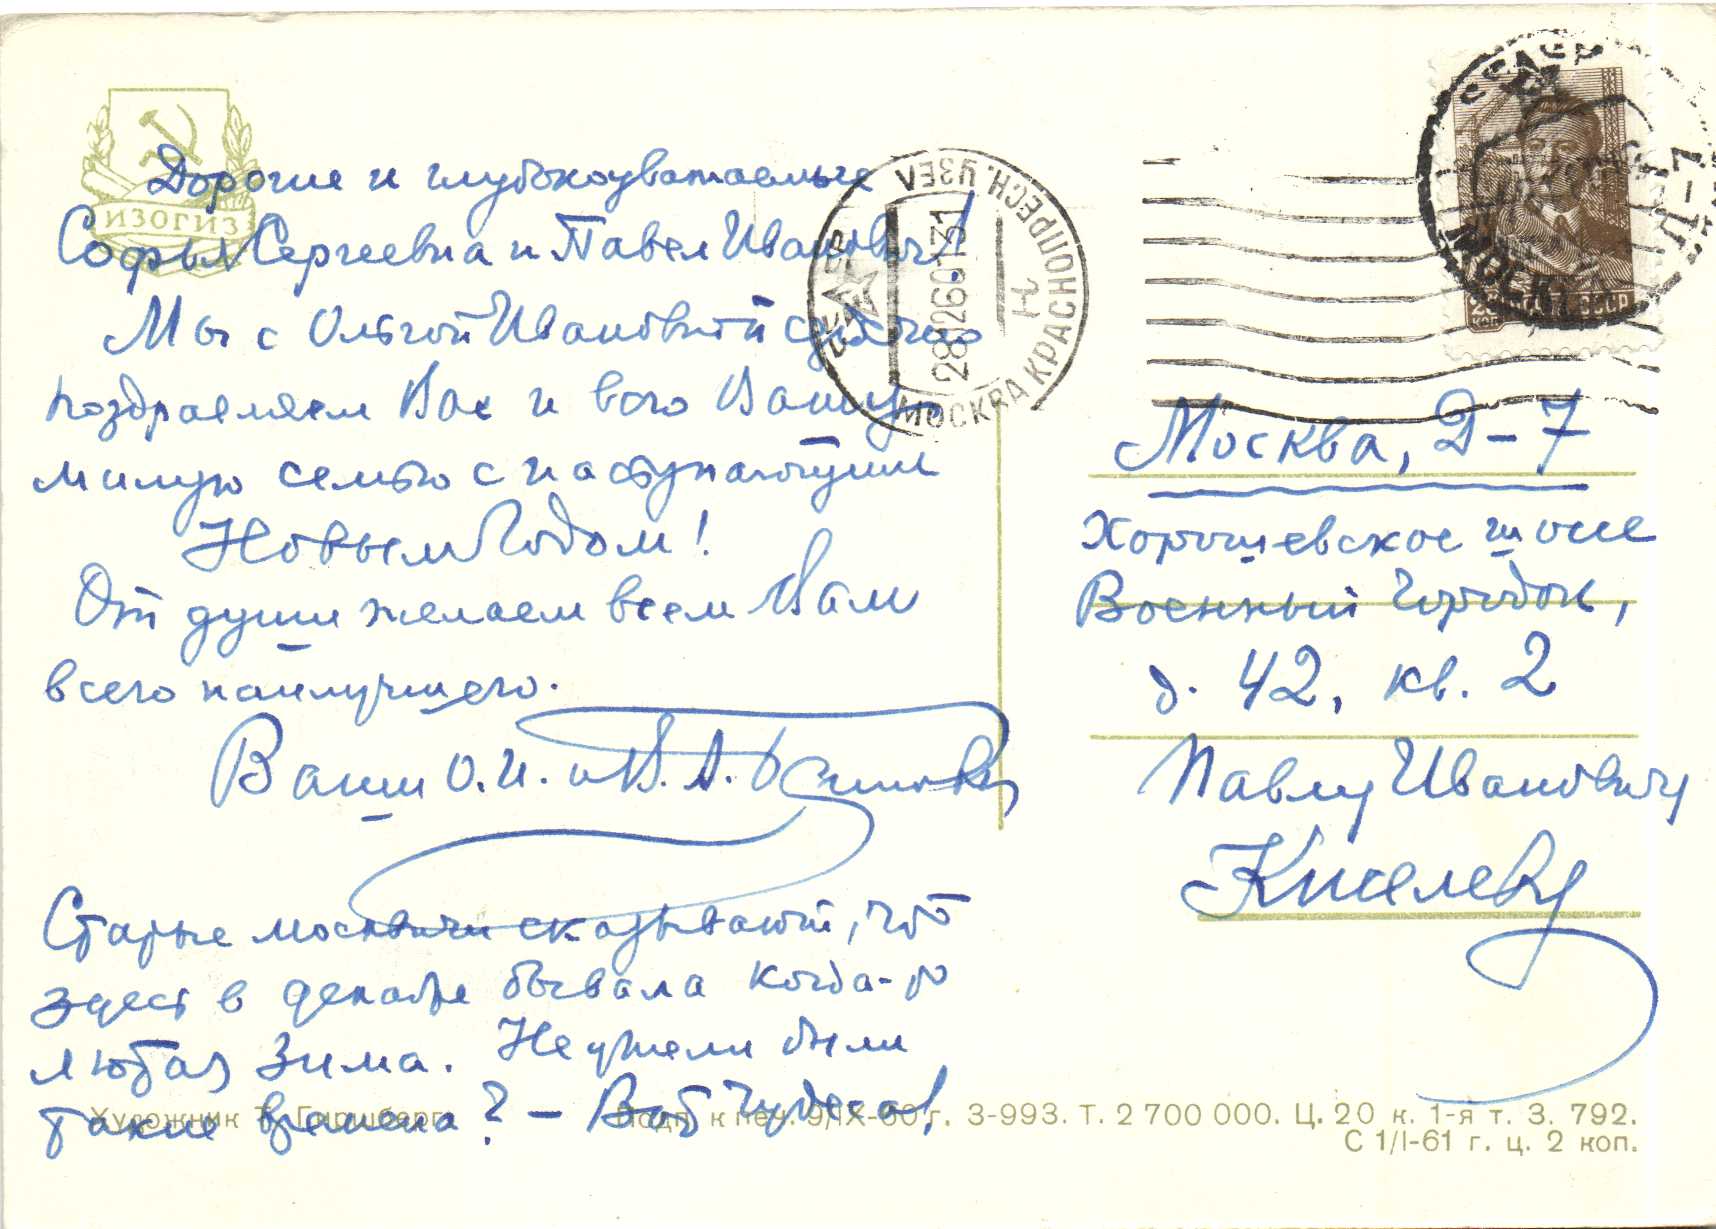 ИЗОГИЗ
Дорогие и глубокоуважаемые
Софья Сергеевна и Павел Иванович!
Мы с Ольгой Ивановной сердечно
поздравляем Вас и всю Вашу
милую семью с наступающим
Новым Годом!
От души желаем всем Вам
всего наилучшего.
Ваши О.И. и В. А.
Старые москвичи сказывают, что
здесь в декабре бывала когда-то
любая зима. Неужели были
такие времена? – Вот чудеса!
СССР
МОСКВА КРАСНОПРЕСН. УЗЕЛ
281260 131
МОСКВА
СССР
Москва, Д-7
Хорошевское шоссе
Военный городок,
д. 42, кв. 2
Павлу Ивановичу
Киселеву
Художник Т. Гиршберг
Подп. к печ. 9/IX-60 г. З-993. Т. 2 700 000. Ц. 20 к. 1-я т. З. 792.
С 1/I-61 г. ц. 2 коп.